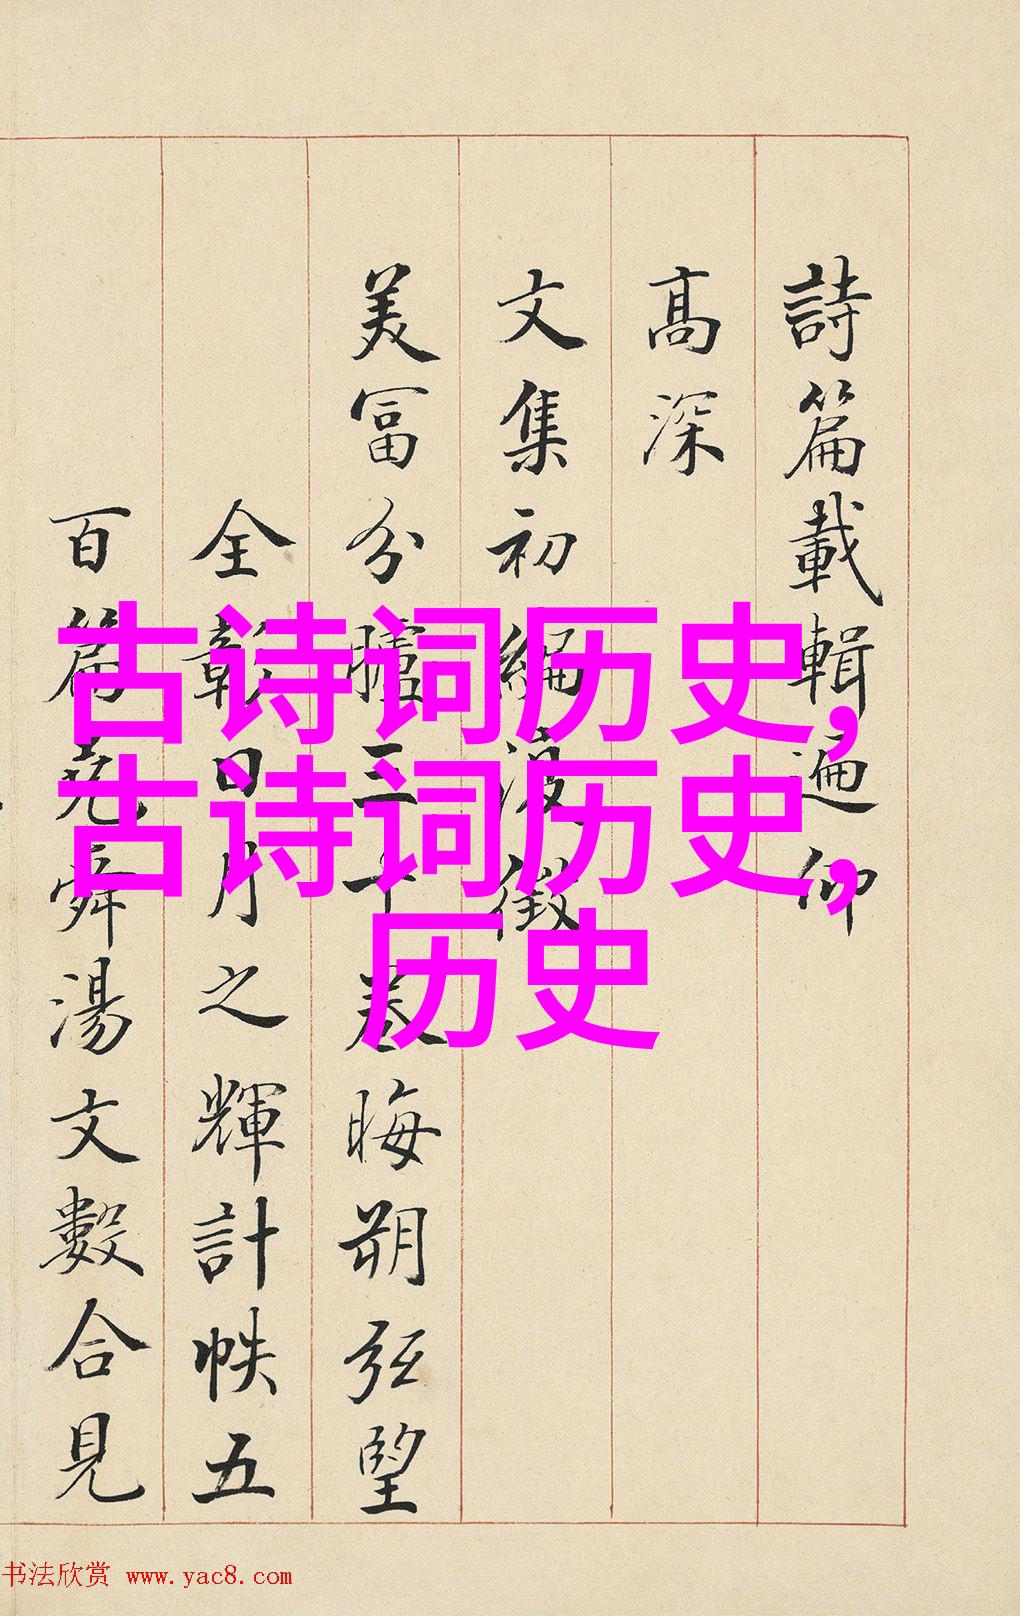 詩篇載輯遍仰
高深
文集初編後徵
美富分臚三十卷晦朔弦望
全彰日月之輝計帙五
百篇堯舜湯文數合見
古诗词历史,
古诗词历史,
历史
书法欣赏 www.yac8.com